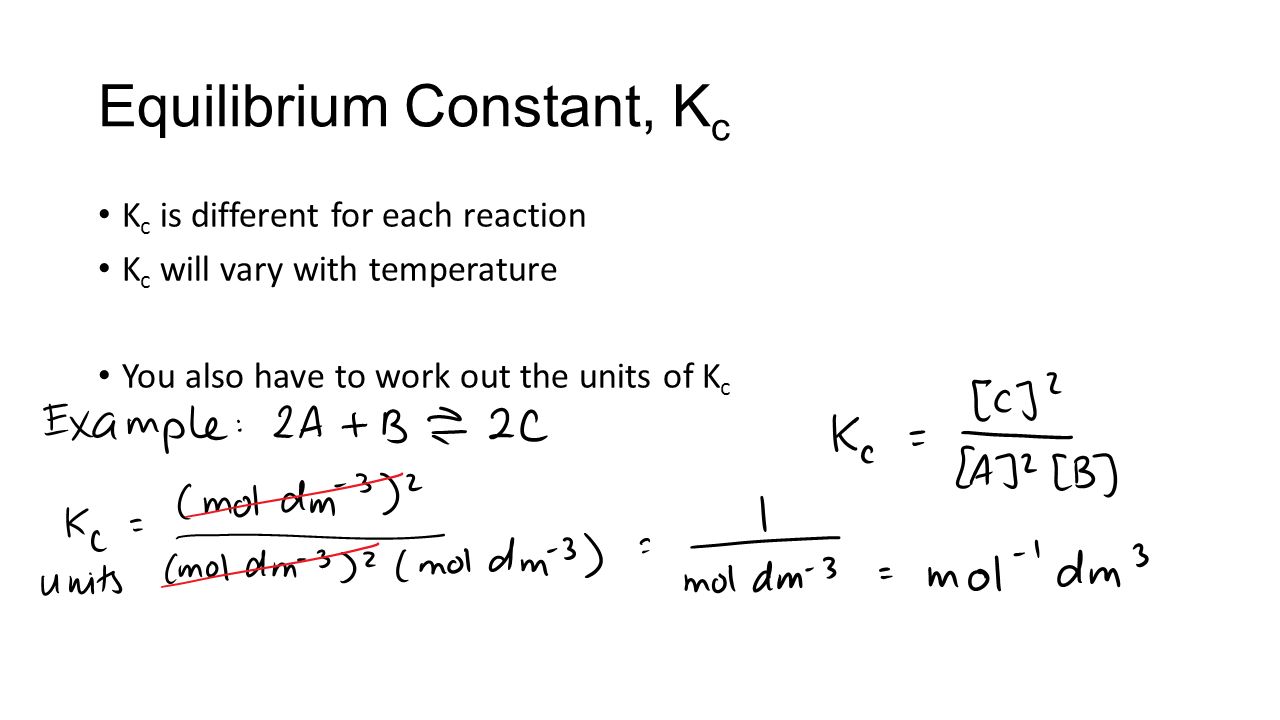 Equilibrium Constant, Kc
• Kc is different for each reaction
• Kc will vary with temperature
• You also have to work out the units of Kc
Example: 2A + B ⇌ 2C
Kc = [C]² / [A]² [B]
Kc units = (mol dm⁻³)² / (mol dm⁻³)² (mol dm⁻³) = 1 / mol dm⁻³ = mol⁻¹ dm³